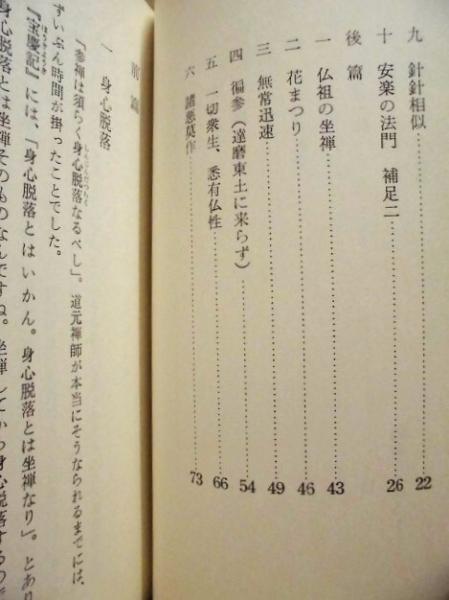 九 針針相似 22
十 安楽の法門 補足二 26
後篇
一 仏祖の坐禅 43
二 花まつり 46
三 無常迅速 49
四 徧参（達磨東土に来らず） 54
五 一切衆生、悉有仏性 66
六 諸悪莫作 73
前篇
一 身心脱落
「参禅は須らく身心脱落なるべし」。道元禅師が本当にそうなられるまでには、
ずいぶん時間が掛ったことでした。
『宝慶記』には、「身心脱落とはいかん。身心脱落とは坐禅なり」。とあり
身心脱落とは坐禅そのものなんですね。坐禅してかつ身心脱落する